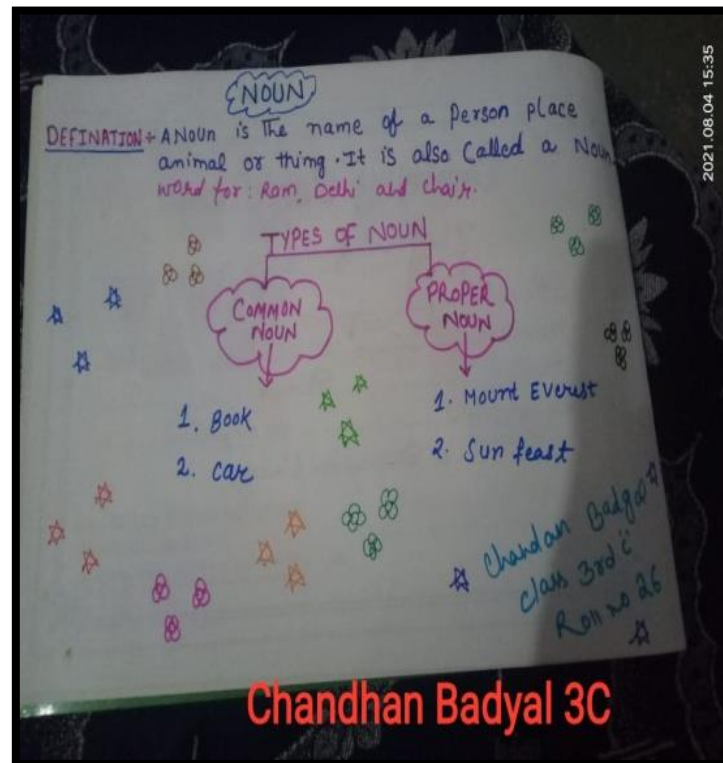 NOUN
DEFINATION ÷ A Noun is The name of a Person place
animal or thing. It is also Called a Noun
word for: Ram, Delhi and chair.
TYPES OF NOUN
COMMON
NOUN
PROPER
NOUN
1. Book
2. Car
1. Mount Everest
2. Sun feast
Chandan Badyal
Class 3rd 'c'
Roll no 26
2021.08.04 15:35
Chandhan Badyal 3C